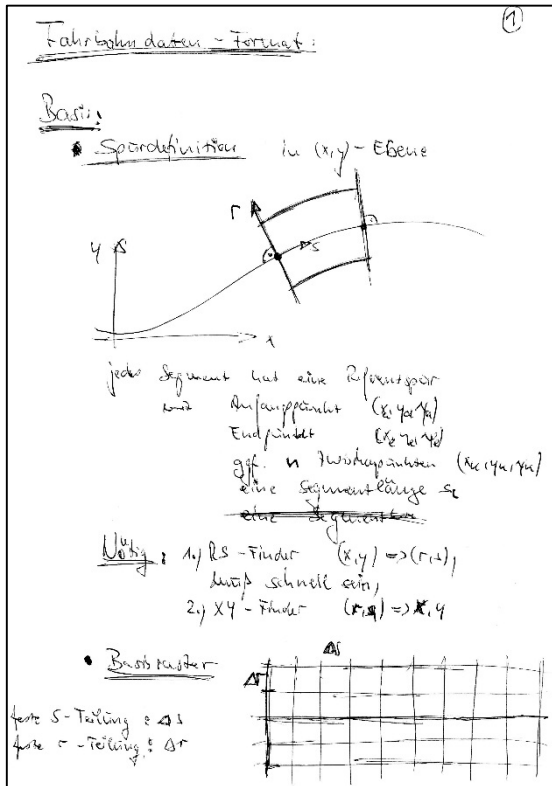 1
Fahrbahndaten-Format:
Basis:
• Spurdefinition in (x,y)-Ebene
r
s
y
x
jedes Segment hat eine Referenzspur
mit Anfangspunkt
Endpunkt
ggf. n Zwischenpunkten
eine Segmentlänge
eine Segment
Nötig: 1.) RS-Finder (x,y) => (r,s),
muß schnell sein,
2.) XY-Finder (r,s) => x,y
• Basisraster
Δs
Δr
feste S-Teilung: Δs
feste r-Teilung: Δr